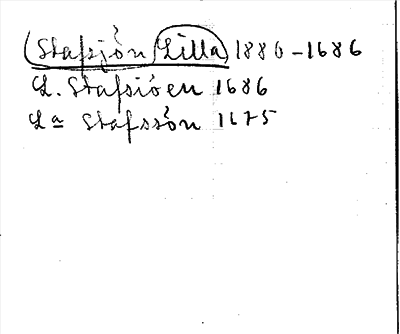 (Stafsjön, Lilla) 1880-1686
L. Stafsiöen 1686
La Stafssön 1675